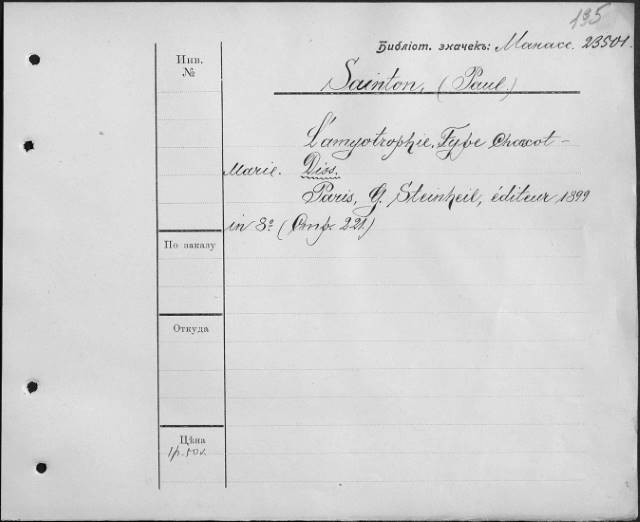 135
Библіот. значекъ: Манасс. 23501.
Инв.
№
Sainton, (Paul.)
L'amyotrophie. Type Charcot-
Marie. Diss.
Paris, G. Steinheil, éditeur 1899
in 8º (Стр. 221)
По заказу
Откуда
Цѣна
1р. 50к.